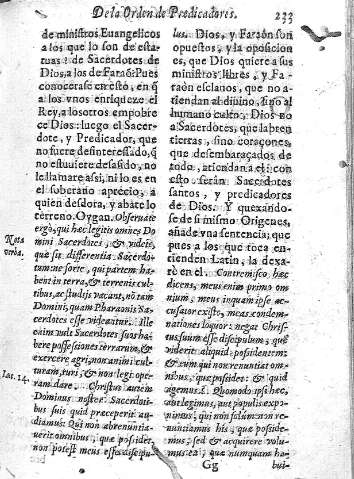 De la Orden de Predicadores. 233
de ministros Euangelicos
a los que lo son de esta-
tuas: de Sacerdotes de
Dios, a los de Faraõ: Pues
conocerase en esto, en q̃
a los vnos enriqueze el
Rey, a los otros empobre
ce Dios: luego el Sacer-
dote, y Predicador, que
no fuere desinteressado, q̃
no estuuiere desasido, no
le llamare assi, ni lo es en
el soberano aprecio, a
quien desdora, y abate lo
terreno. Oygan. Obseruate
ergò, qui hæc legitis omnes Do
mini Sacerdotes, & videte,
quæ sit differentia Sacerdo-
tum ne forte, qui partem ha-
bent in terra, & terrenis cul-
tibus, ac studijs vacant, nō tam
Domini, quam Pharaonis Sa-
cerdotes esse videātur. Ille
enim vult Sacerdotes suos ha-
bere possessiones terrarum, &
exercere agri, non animi cul-
turam, ruri, & non legi ope-
ram dare. Christus autem
Dominus noster Sacerdoti-
bus suis quid preceperit au-
diamus: Qui non abrenuntia-
uerit omnibus, quæ possidet,
non potest meus esse discipu-
Nota
verba.
Luc. 14.
lus. Dios, y Faraón son
opuestos, y la oposicion
es, que Dios quiere a sus
ministros libres, y Fa-
raón esclauos, que no a-
tiendan al diuino, sino al
humano culto: Dios no
a Sacerdotes, que labren
tierras, sino coraçones,
que desembaraçados de
todo, atiendan a el: con
esto serán Sacerdotes
santos, y predicadores
de Dios. Y quexando-
se de si mismo Origenes,
añade vna sentencia; que
pues a los que toca en-
tienden Latin, la dexa-
rè en el. Contremisco hæc
dicens, meus enim primo om
nium, meus inquam ipse ac-
cusator existo, meas condem-
nationes loquor: negat Chris-
tus suum esse discipulum, quē
viderit aliquid possidentem:
& eum qui non renuntiat om-
nibus, quæ possidet: & quid
agimus? Quomodo ista hæc,
aut legimus, aut populis expo-
nimus, qui non solum non re-
nuntiamus his, quæ posside-
mus, sed & acquirere volu-
mus ea, quæ numquam ha-
Gg bui-